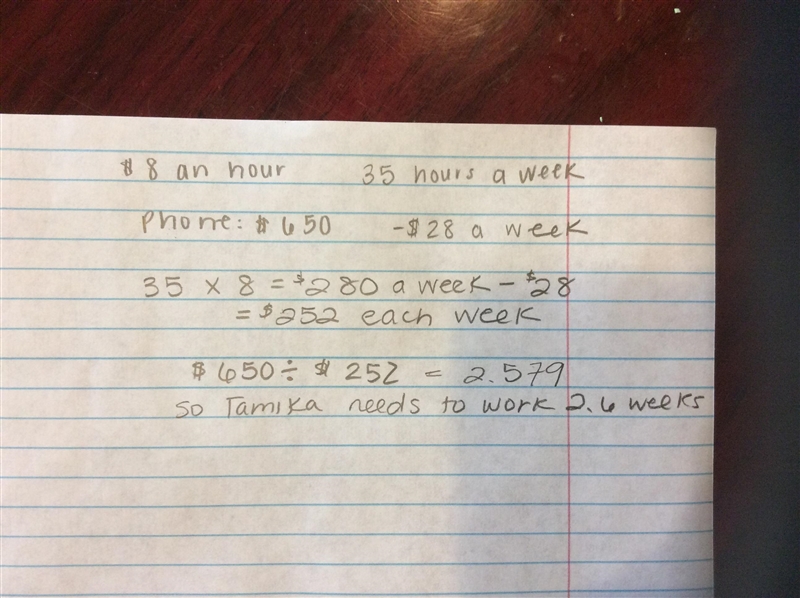 $8 an hour 35 hours a week
Phone: $650 -$28 a week
35 x 8 = $280 a week - $28
= $252 each week
$650 ÷ $252 = 2.579
So Tamika needs to work 2.6 weeks